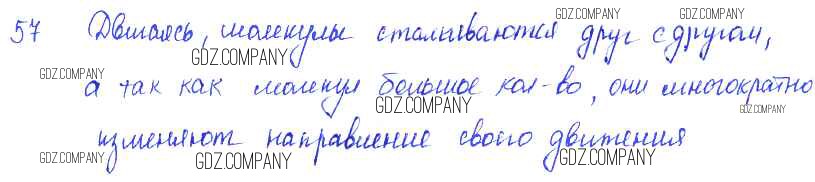 57 Двигаясь, молекулы сталкиваются друг с другом,
а так как молекул большое кол-во, они многократно
изменяют направление своего движения
GDZ.COMPANY GDZ.COMPANY
GDZ.COMPANY
GDZ.COMPANY
GDZ.COMPANY GDZ.COMPANY
GDZ.COMPANY GDZ.COMPANY GDZ.COMPANY